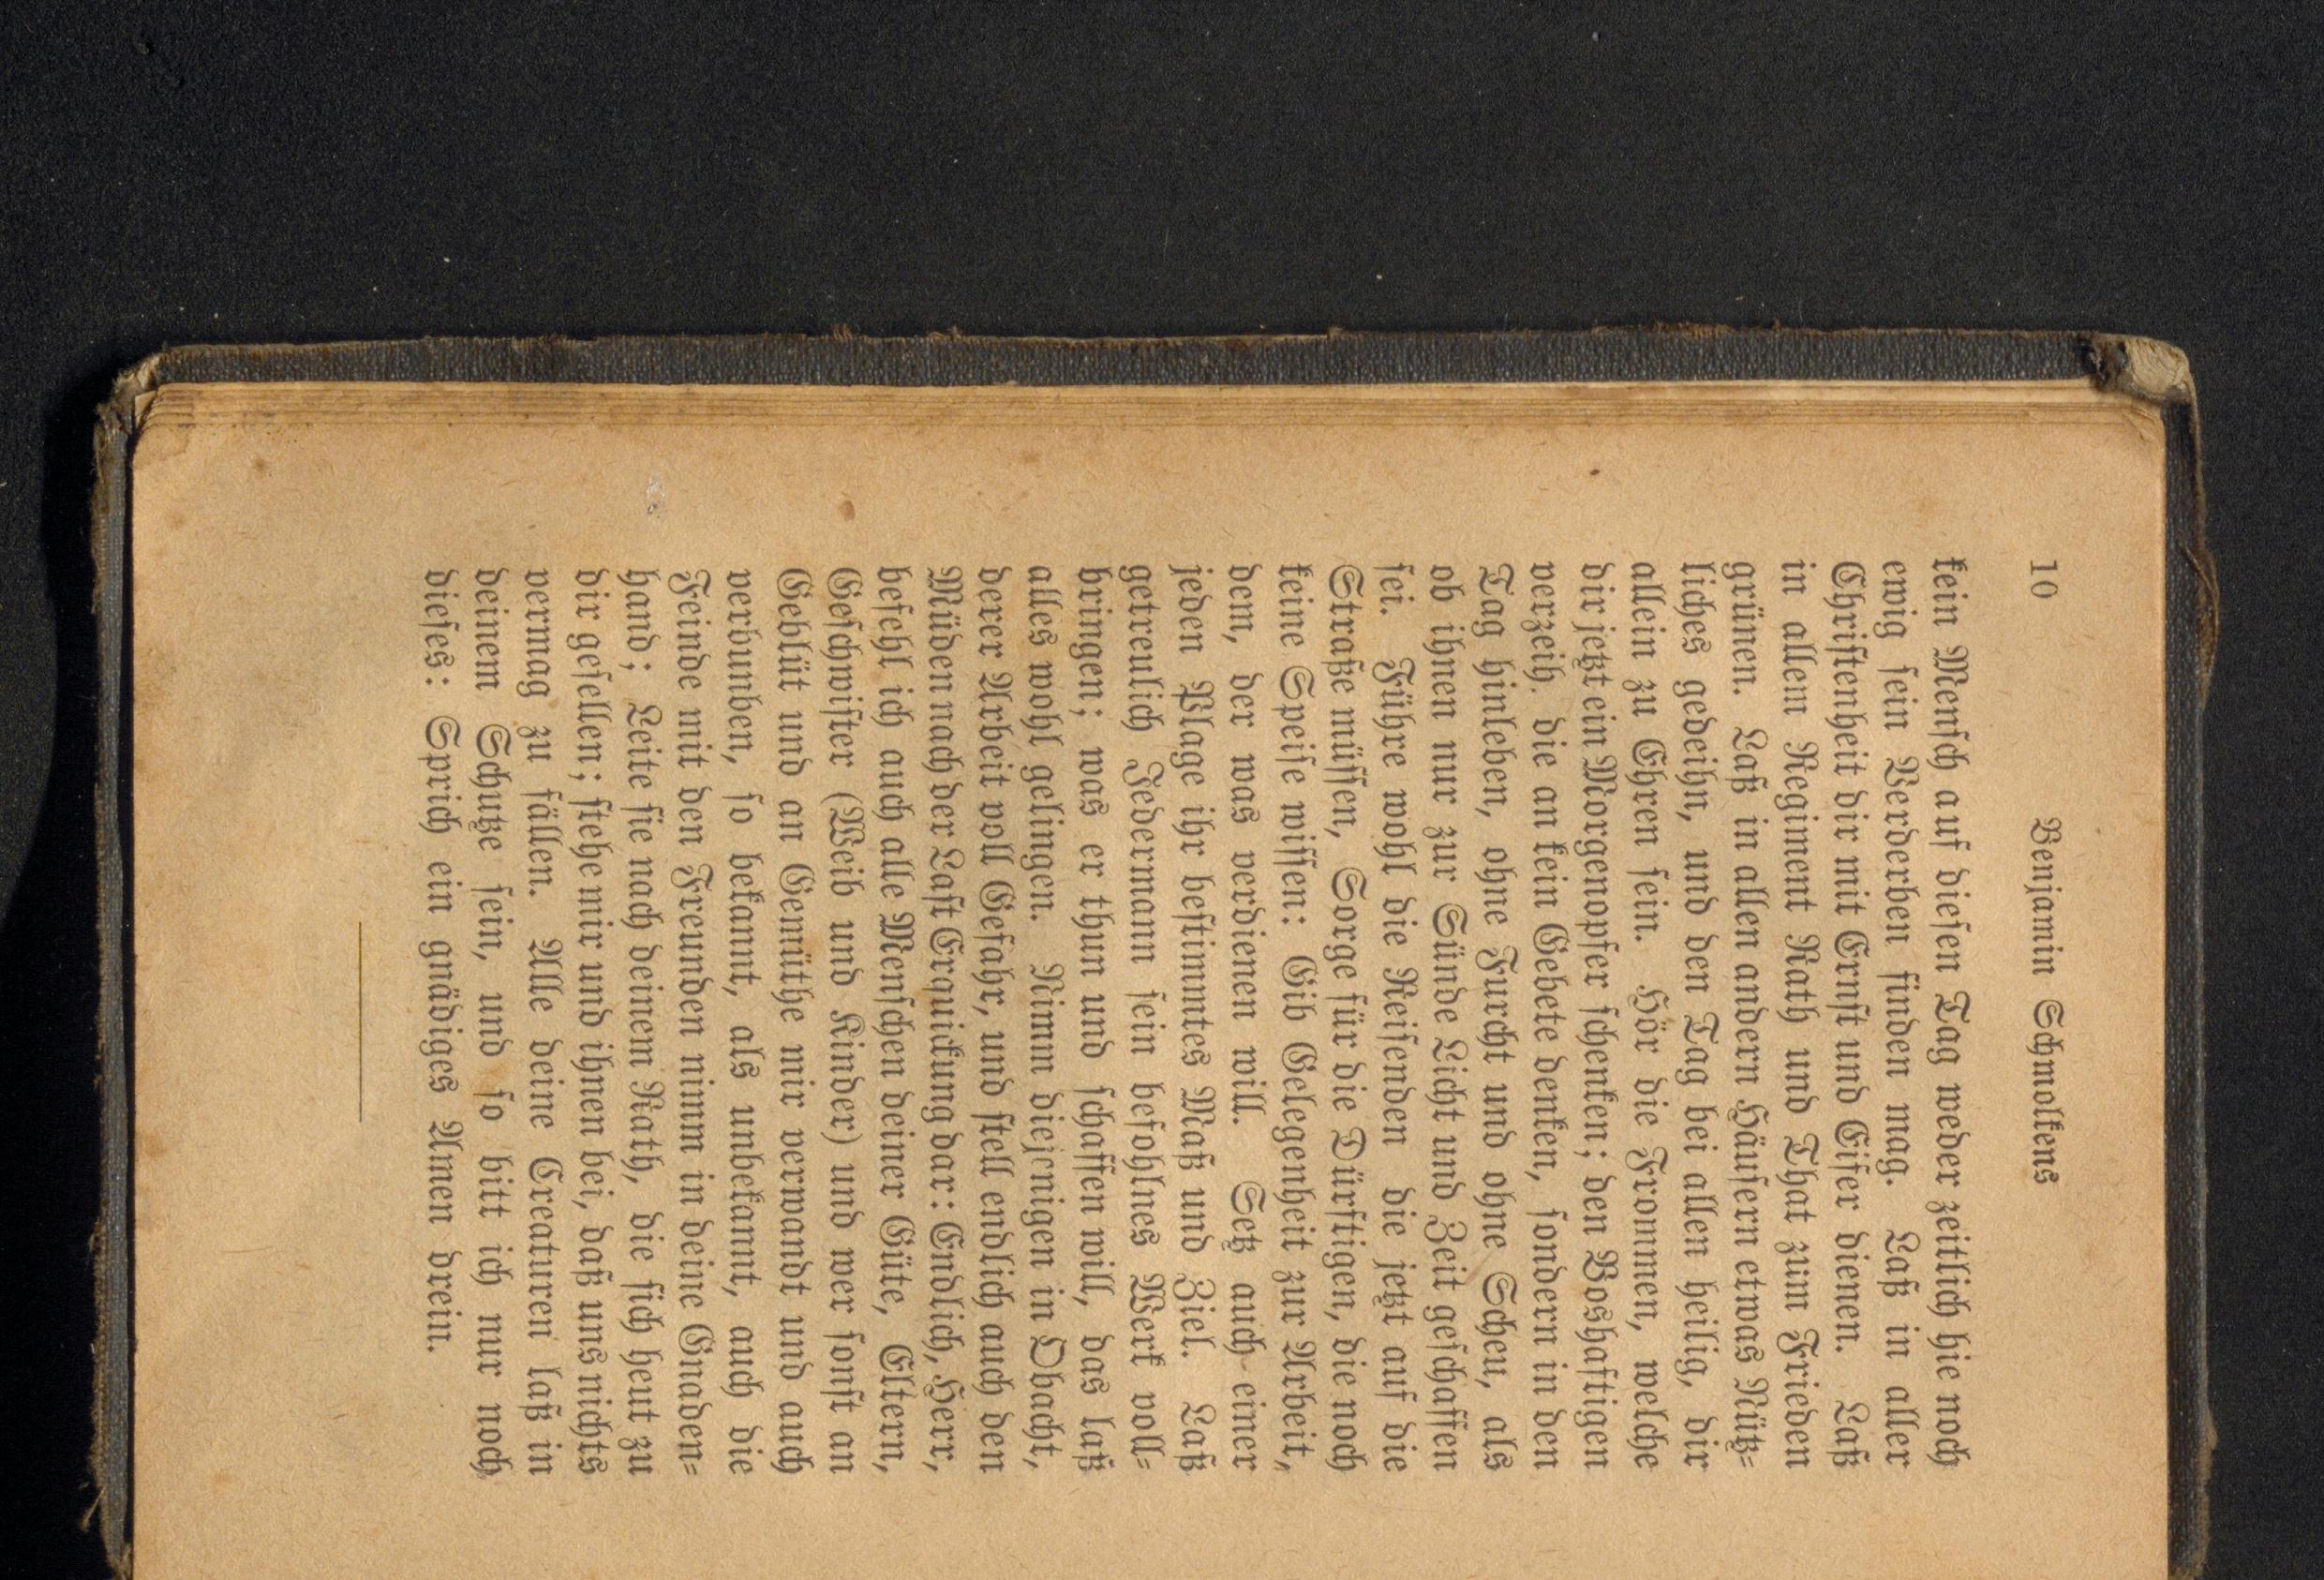 10 Benjamin Schmolkens
kein Mensch auf diesen Tag weder zeitlich hie noch
ewig sein Verderben finden mag. Laß in aller
Christenheit dir mit Ernst und Eifer dienen. Laß
in allem Regiment Rath und That zum Frieden
grünen. Laß in allen andern Häusern etwas Nütz-
liches gedeihn, und den Tag bei allen heilig, dir
allein zu Ehren sein. Hör die Frommen, welche
dir jetzt ein Morgenopfer schenken; den Boshaftigen
verzeih, die an kein Gebete denken, sondern in den
Tag hinleben, ohne Furcht und ohne Scheu, als
ob ihnen nur zur Sünde Licht und Zeit geschaffen
sei. Führe wohl die Reisenden die jetzt auf die
Straße müssen, Sorge für die Dürftigen, die noch
keine Speise wissen: Gib Gelegenheit zur Arbeit,
dem, der was verdienen will. Setz auch einer
jeden Plage ihr bestimmtes Maß und Ziel. Laß
getreulich Jedermann sein befohlnes Werk voll-
bringen; was er thun und schaffen will, das laß
alles wohl gelingen. Nimm diejenigen in Obacht,
derer Arbeit voll Gefahr, und stell endlich auch den
Müden nach der Last Erquickung dar: Endlich, Herr,
befehl ich auch alle Menschen deiner Güte, Eltern,
Geschwister (Weib und Kinder) und wer sonst an
Geblüt und an Gemüthe mir verwandt und auch
verbunden, so bekannt, als unbekannt, auch die
Feinde mit den Freunden nimm in deine Gnaden-
hand; Leite sie nach deinem Rath, die sich heut zu
dir gesellen; stehe mir und ihnen bei, daß uns nichts
vermag zu fällen. Alle deine Creaturen laß in
deinem Schutze sein, und so bitt ich nur noch
dieses: Sprich ein gnädiges Amen drein.